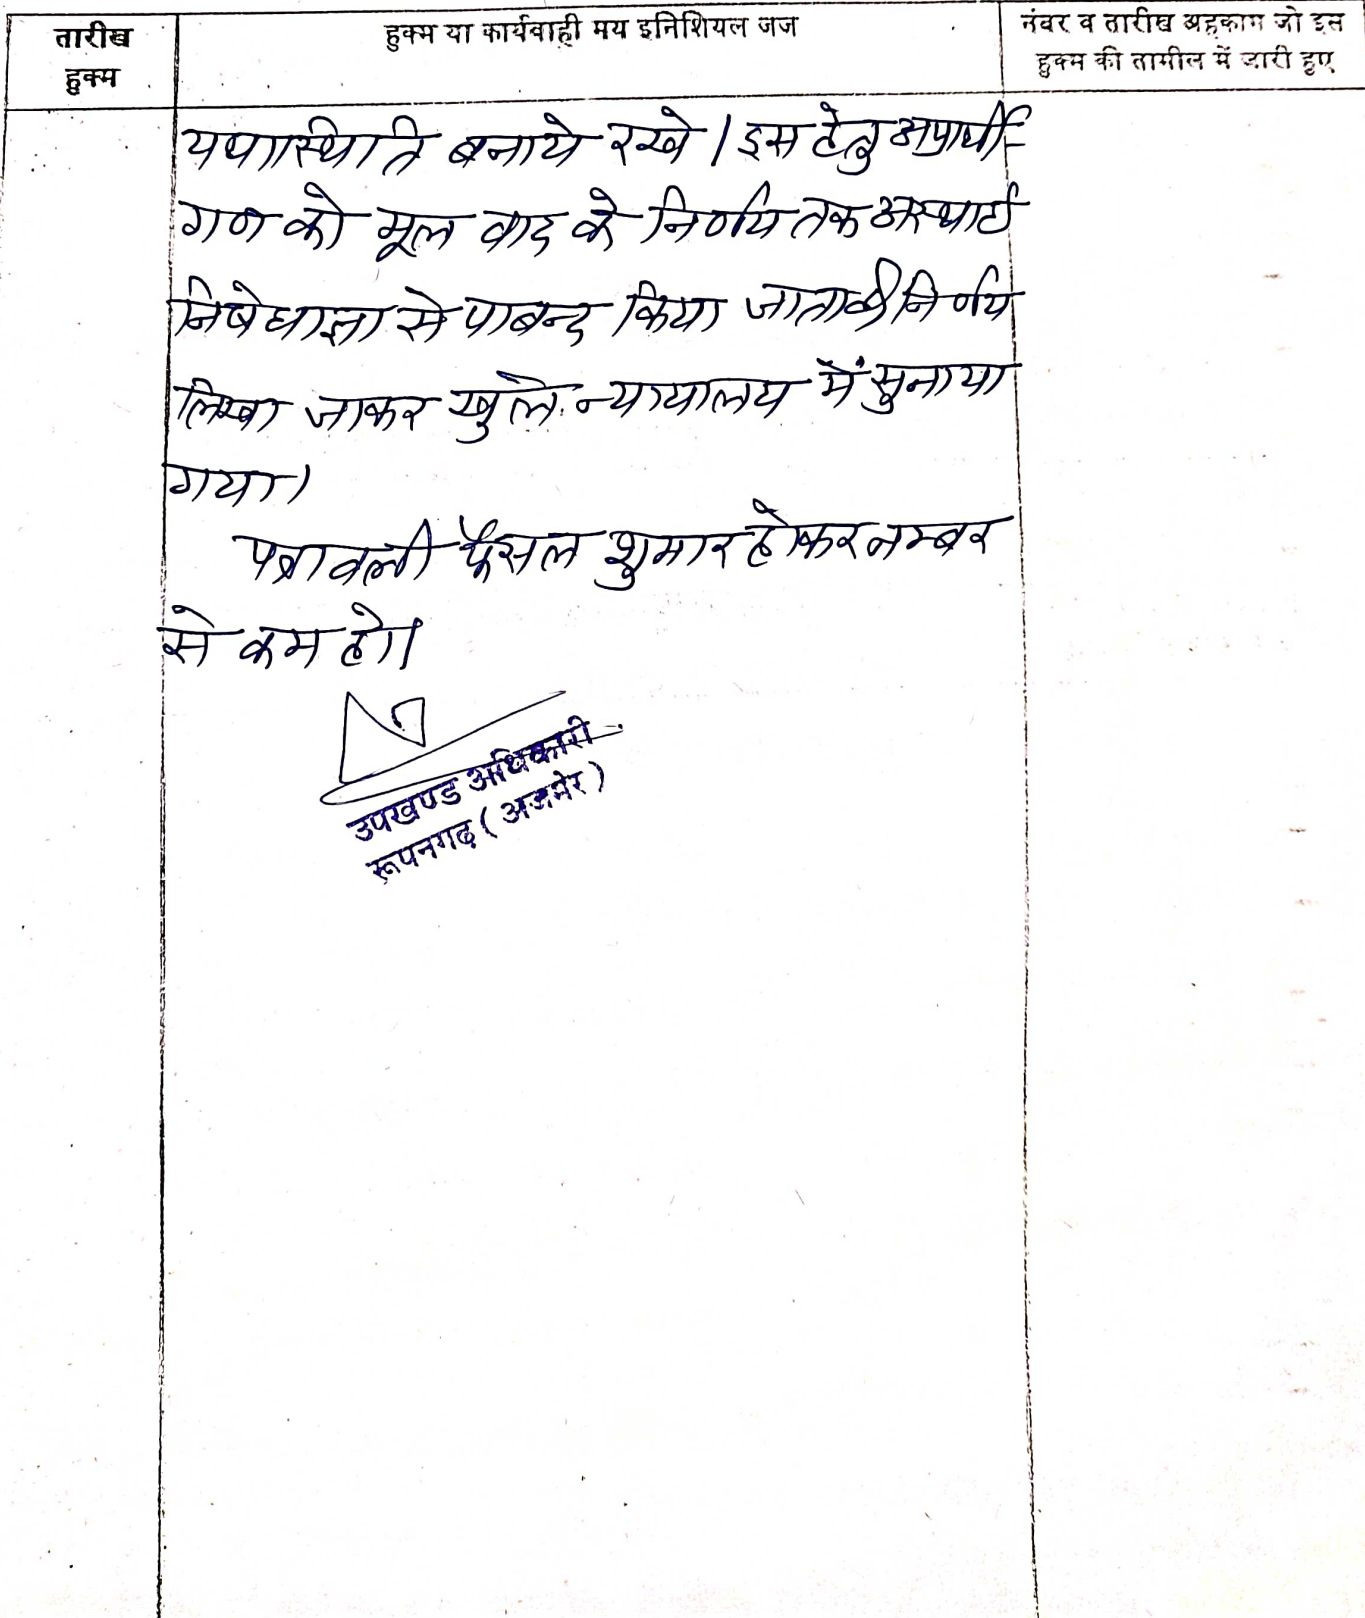 तारीख
हुक्म
हुक्म या कार्यवाही मय इनिशियल जज
नंबर व तारीख अहकाम जो इस
हुक्म की तामील में जारी हुए
यथास्थिति बनाये रखे । इस हेतु अप्रार्थी-
गण को मूल वाद के निर्णय तक अस्थाई
निषेधाज्ञा से पाबन्द किया जाता है। निर्णय
लिखा जाकर खुले न्यायालय में सुनाया
गया।
पत्रावली फैसल शुमार होकर नम्बर
से कम हो।
उपखण्ड अधिकारी
रूपनगढ़ (अजमेर)